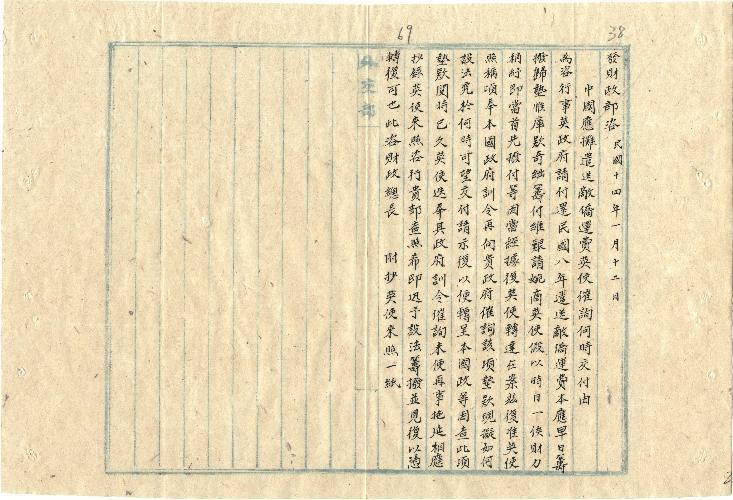 38
69
發財政部咨 民國十四年一月十二日
中國應攤遣送敵僑運費英使催詢何時交付由
為咨行事英政府請付還民國八年遣送敵僑運費本應早日籌
撥歸墊惟庫款奇絀籌付維艱請婉商英使假以時日一俟財力
稍紓即當首先撥付等因當經據復英使轉達在案茲復准英使
照稱頃奉本國政府訓令再向貴政府催詢該項墊款現擬如何
設法究於何時可望交付請示復以便轉呈本國政府等因查此項
墊款閱時已久英使迭奉其政府訓令催詢未便再事拖延相應
抄錄英使來照咨行貴部查照希即迅予設法籌撥並見復以憑
轉復可也此咨財政總長 附抄英使來照一紙
外交部